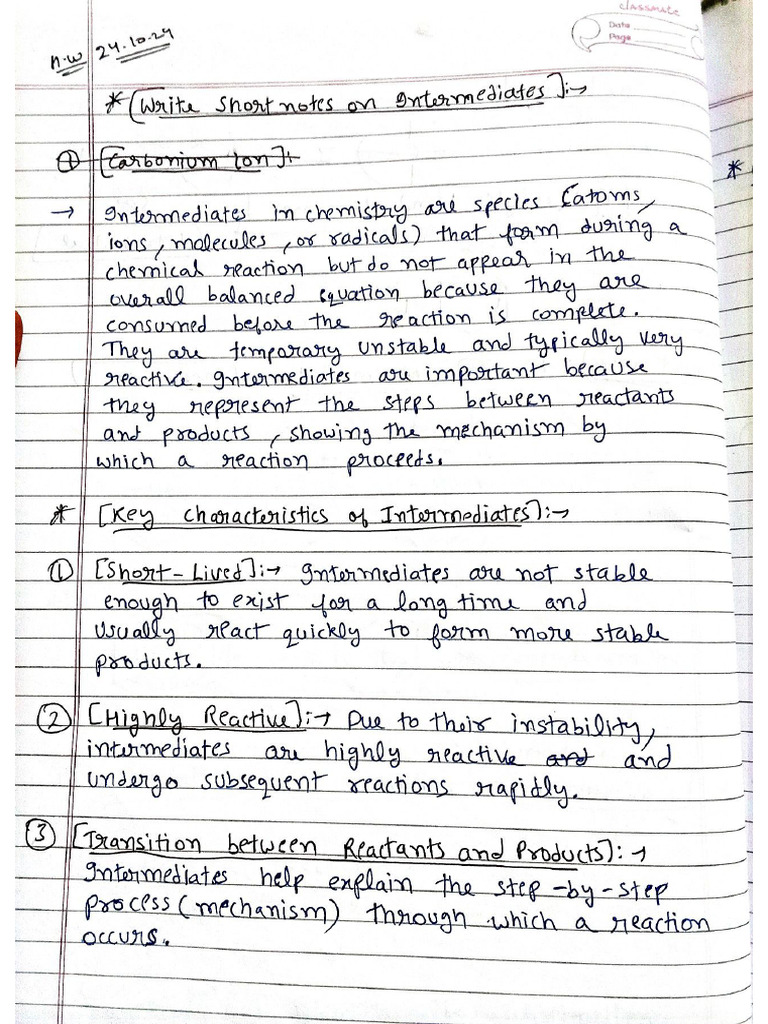 classmate
Date
Page
H.W 24.10.24
* [Write Short notes on Intermediates]:→
① [Carbonium Ion]:→
→ Intermediates in chemistry are species (atoms,
ions, molecules, or radicals) that form during a
chemical reaction but do not appear in the
overall balanced equation because they are
consumed before the reaction is complete.
They are temporary unstable and typically very
reactive. Intermediates are important because
they represent the steps between reactants
and products, showing the mechanism by
which a reaction proceeds.
* [Key Characteristics of Intermediates]:→
① [Short-Lived]:→ Intermediates are not stable
enough to exist for a long time and
usually react quickly to form more stable
products.
② [Highly Reactive]:→ Due to their instability,
intermediates are highly reactive and and
undergo subsequent reactions rapidly.
③ [Transition between Reactants and Products]:→
Intermediates help explain the step-by-step
process (mechanism) through which a reaction
occurs.
*